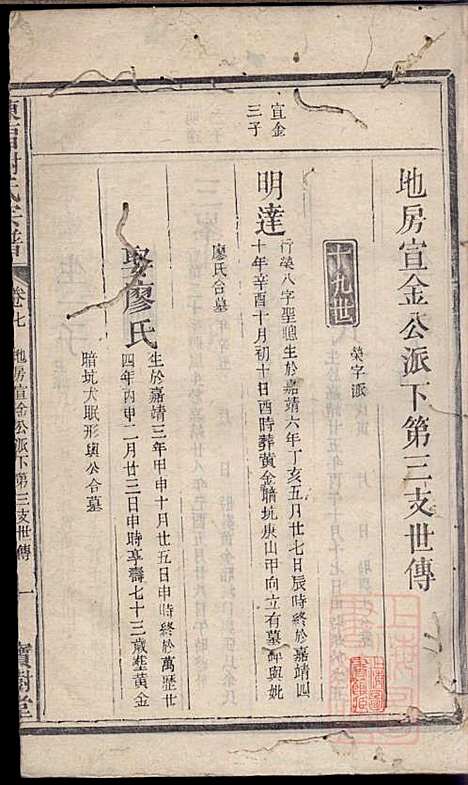 地房宣金公派下第三支世傳
十九世
榮字派
宣金
三子
明達
行榮八字聖聰生於嘉靖六年丁亥五月廿七日辰時終於嘉靖四
十年辛酉十月初十日酉時葬黃金暗坑庚山甲向立有墓碑與妣
廖氏合墓
娶廖氏
生於嘉靖三年甲申十月廿五日申時終於萬歷廿
四年丙申二月廿三日申時享壽七十三歲塟黃金
暗坑犬眠形與公合墓
謝氏宗譜
卷七
地房宣金公派下第三支世傳
一
寶樹堂